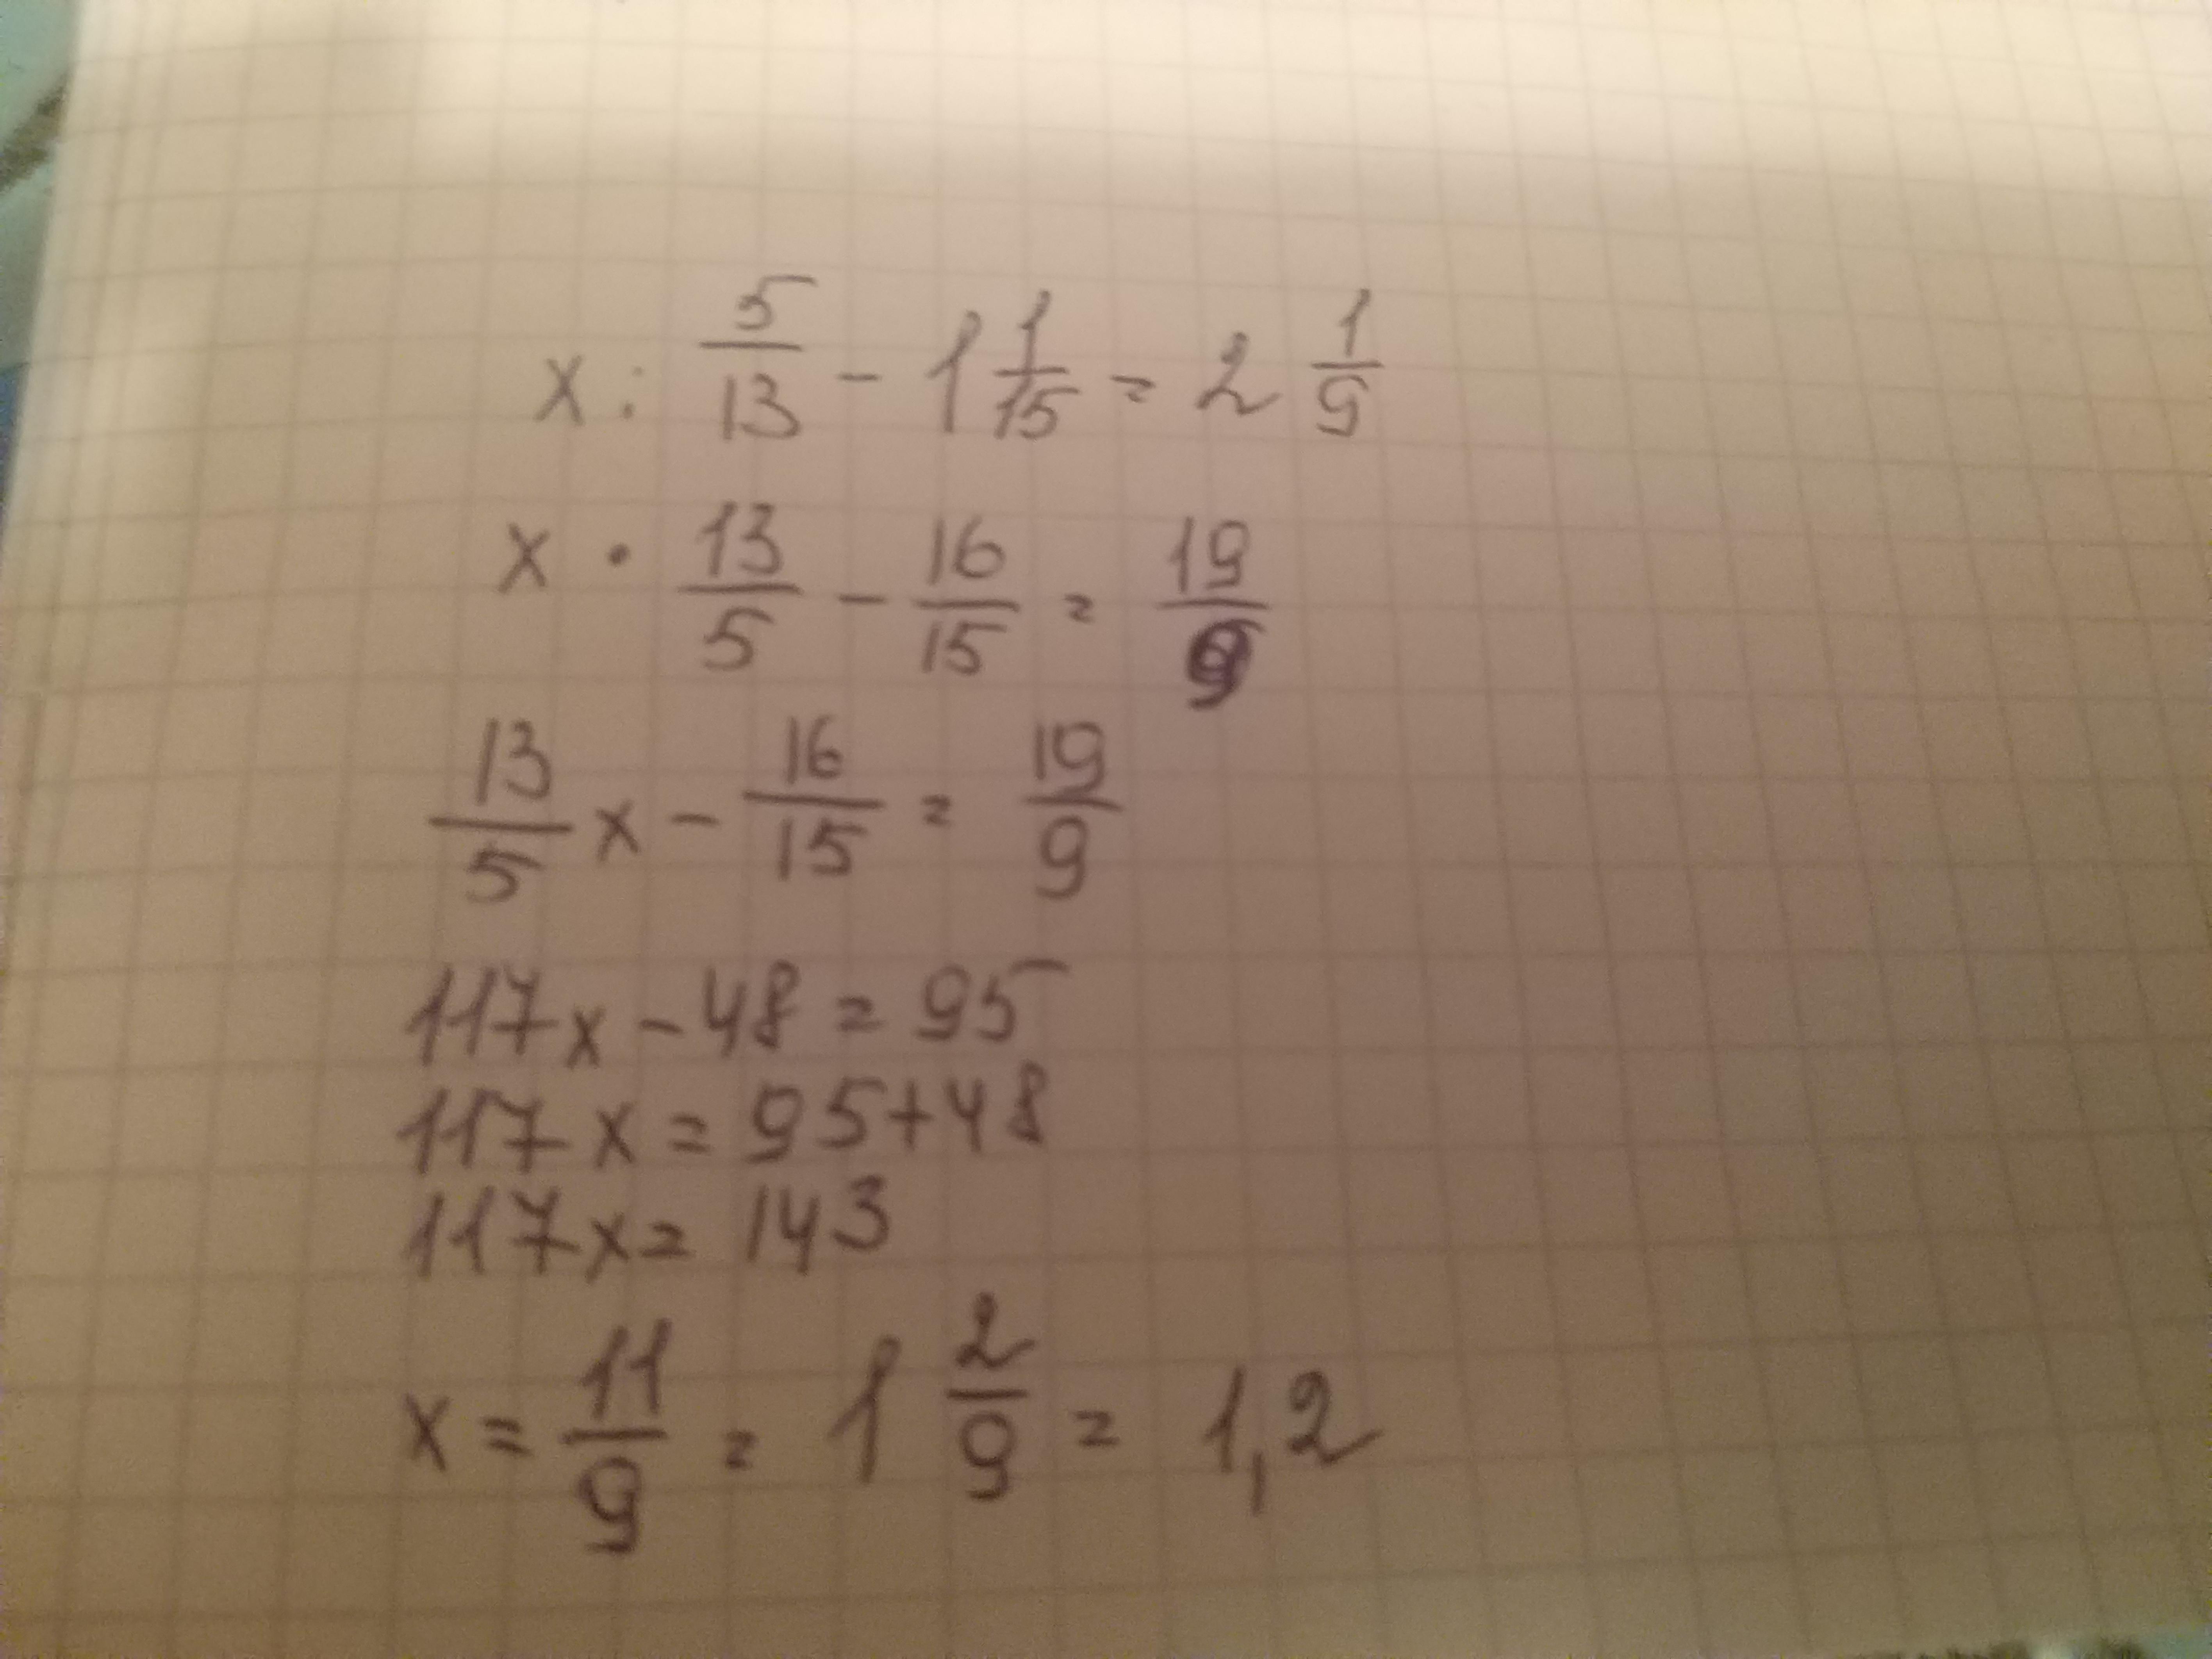 x : 5/13 - 1 1/15 = 2 1/9
x · 13/5 - 16/15 = 19/9
13/5 x - 16/15 = 19/9
117x - 48 = 95
117x = 95+48
117x = 143
x = 11/9 = 1 2/9 = 1,2